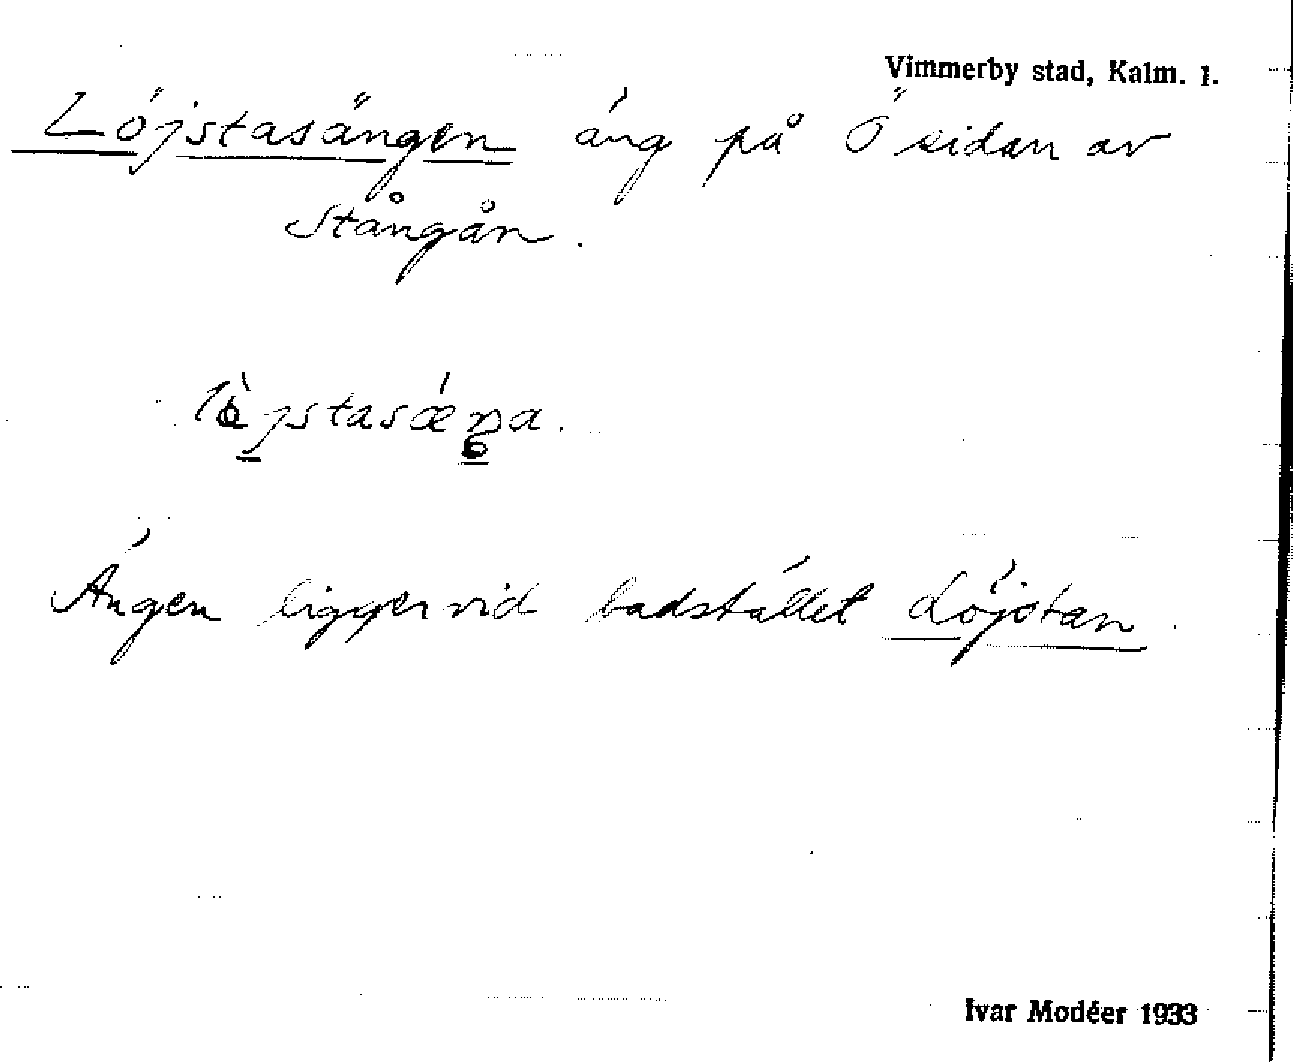 Vimmerby stad, Kalm. l.
Löjstasängen äng på Ö sidan av
Stångån.
Ängen ligger vid badstället Löjstan.
Ivar Modéer 1933